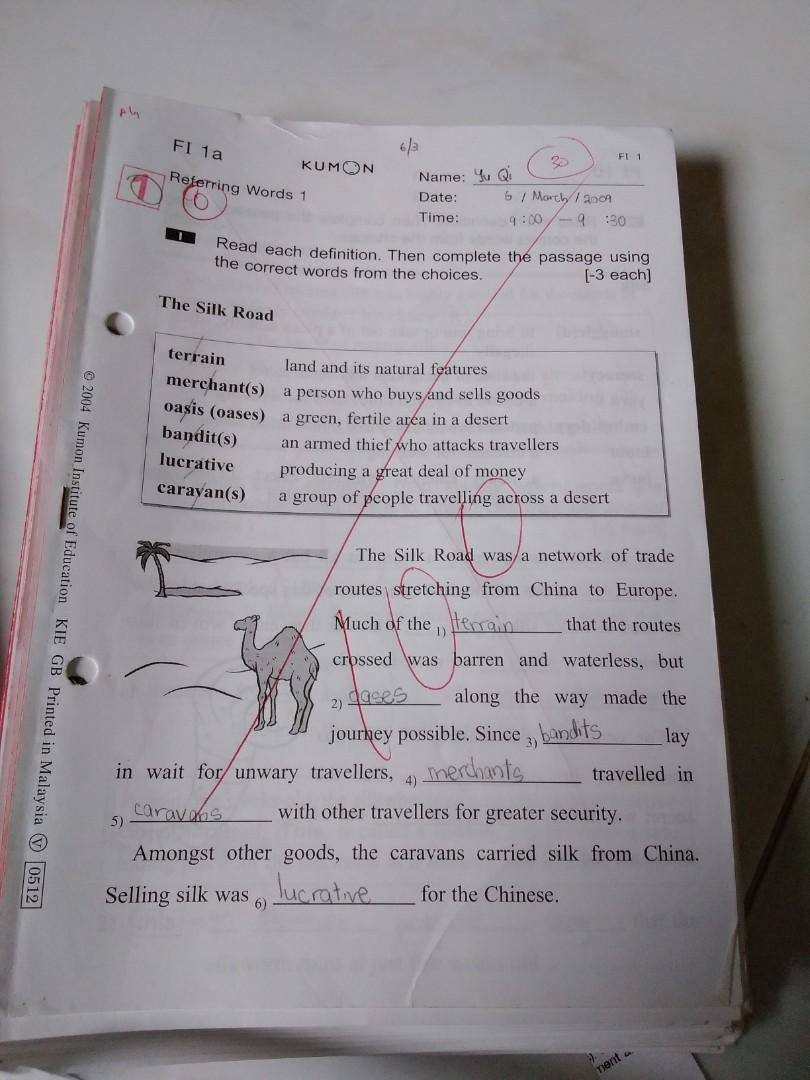 6/3
30
FI 1a
KUMON
FI 1
Name: Yu Qi
1 6 Referring Words 1
Date: 6 / March / 2009
Time: 9:00 - 9 :30
1 Read each definition. Then complete the passage using
the correct words from the choices. [-3 each]
The Silk Road
terrain land and its natural features
merchant(s) a person who buys and sells goods
oasis (oases) a green, fertile area in a desert
bandit(s) an armed thief who attacks travellers
lucrative producing a great deal of money
caravan(s) a group of people travelling across a desert
100
The Silk Road was a network of trade
routes stretching from China to Europe.
Much of the 1) terrain that the routes
crossed was barren and waterless, but
2) oases along the way made the
journey possible. Since 3) bandits lay
in wait for unwary travellers, 4) merchants travelled in
5) caravans with other travellers for greater security.
Amongst other goods, the caravans carried silk from China.
Selling silk was 6) lucrative for the Chinese.
© 2004 Kumon Institute of Education KIE GB Printed in Malaysia V 0512